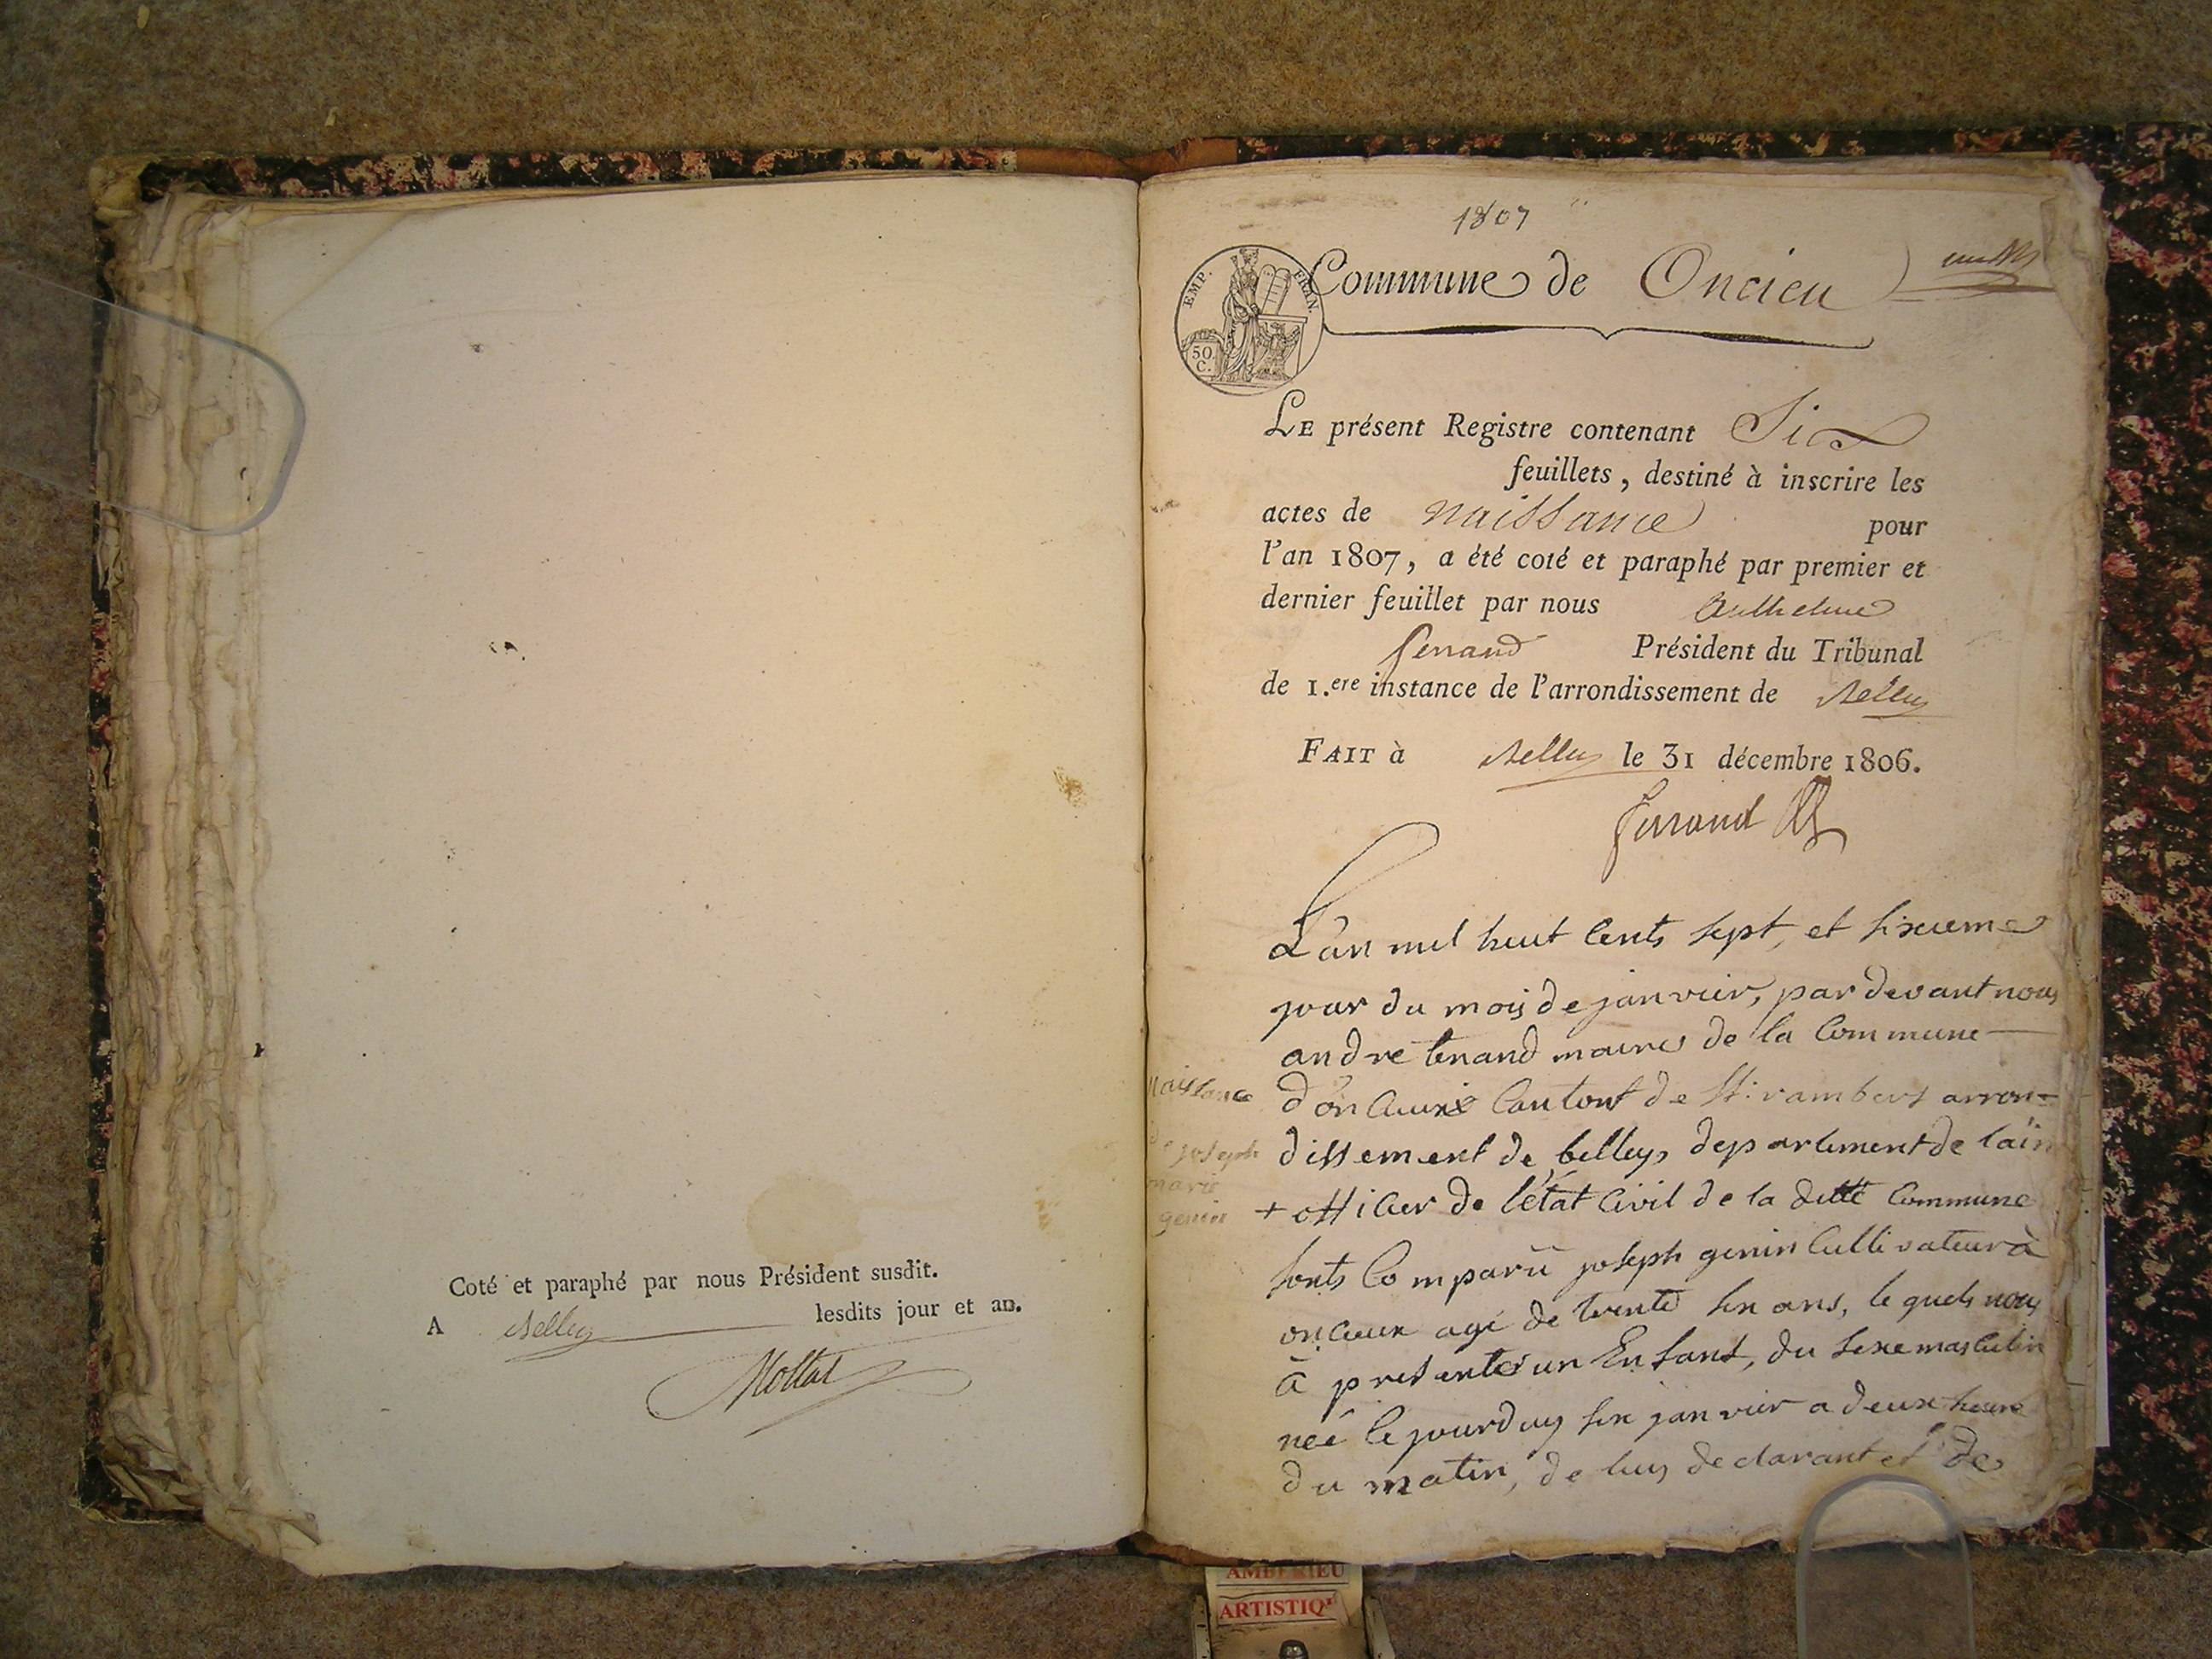 Coté et paraphé par nous Président susdit.
A Belley lesdits jour et an.
Mollat
1807
Commune de Oncieu
EMP. FRAN.
50. C.
LE présent Registre contenant Six
feuillets, destiné à inscrire les
actes de naissance pour
l'an 1807, a été coté et paraphé par premier et
dernier feuillet par nous Anthelme
ferrand Président du Tribunal
de 1.ere instance de l'arrondissement de Belley
FAIT à Belley le 31 décembre 1806.
ferrand
L'an mil huit Cents sept, et sixieme
jour du mois de janvier, par devant nous
andre tenand maire de la Commune
Naissance
de joseph
marie
genin
d'oncieux Canton de St. rambert arron=
dissement de belley, departement de l'ain
+ officier de l'état Civil de la ditte Commune
sonts Comparû joseph genin Cultivateur à
oncieux agé de trente six ans, le quels nous
à presenter un Enfant, du sexe masculin
neé le jourduy six janvier a deux heure
du matin, de luy declarant et de
AMBERIEU
ARTISTIQ